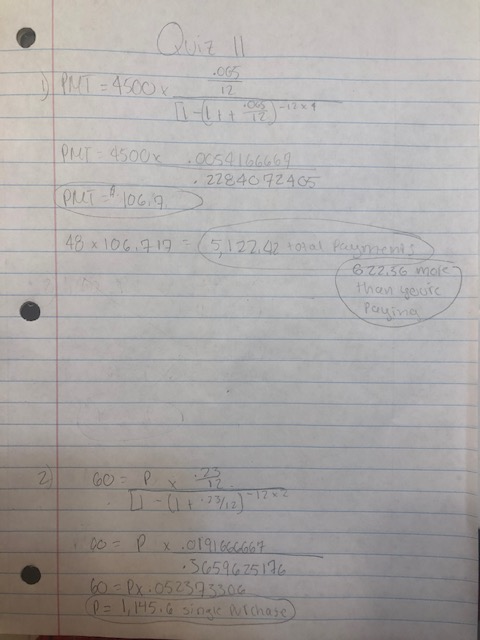 Quiz 11
1) PMT = 4500 x .065/12 / [1 - (1 + .065/12)^-12x4
PMT = 4500 x .0054166667 / .2284072405
PMT = $106.7
48 x 106.717 = 5,122.42 total payments
622.36 more
than you're
paying
2) 60 = P x .23/12 / [1 - (1 + .23/12)^-12x2
60 = P x .0191666667 / .3659625176
60 = P x .052373306
P = 1,145.6 single purchase